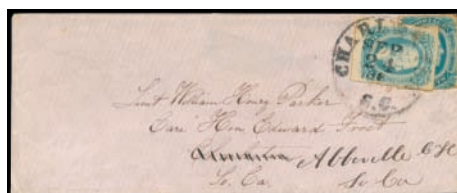 CHARL
S.C.
Lieut William Henry Parker
Care Hon. Edward Frost
Charleston Abbeville C.H.
So. Ca. So Ca